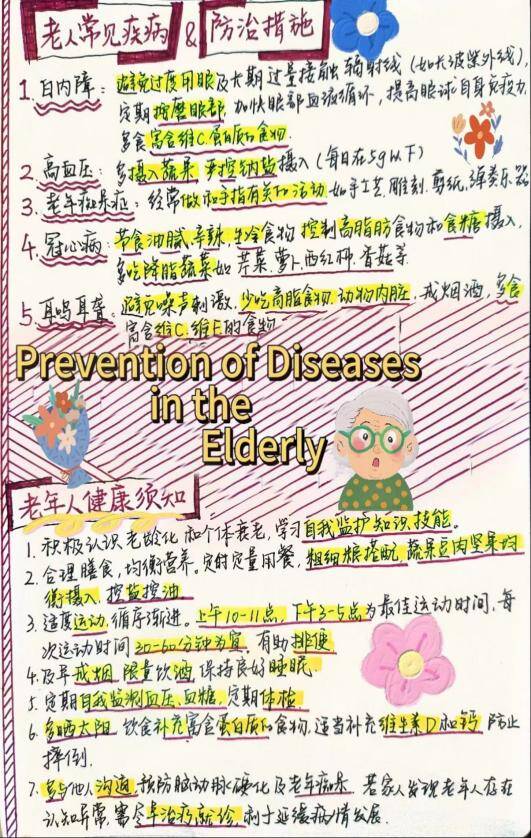 老人常见疾病 & 防治措施
1. 白内障: 避免过度用眼及长期过量接触辐射线 (如长波紫外线),
定期按摩眼部, 加快眼部血液循环, 提高眼球自身免疫力,
多食富含维C. 蛋白质的食物
2. 高血压: 多摄入蔬果 严控钠盐摄入 (每日在5g以下)
3. 老年痴呆症: 经常做和手指有关的活动 如手工艺. 雕刻. 剪纸, 弹奏乐器
4. 冠心病: 节食油腻. 辛辣. 生冷食物 控制高脂肪食物和食糖摄入,
多吃降脂蔬菜如 芹菜. 萝卜. 西红柿. 香菇等.
5. 耳鸣耳聋: 避免噪声刺激, 少吃高脂食物. 动物内脏, 戒烟酒, 多食
富含维C. 维E的食物
Prevention of Diseases
in the
Elderly
老年人健康须知
1. 积极认识老龄化和个体衰老, 学习自我监护知识, 技能。
2. 合理膳食, 均衡营养。定时定量用餐, 粗细粮搭配, 蔬果豆肉坚果均
衡摄入, 控盐控油
3. 适度运动, 循序渐进。上午10-11点, 下午3-5点为最佳运动时间, 每
次运动时间30-60分钟为宜, 有助排便
4. 及早戒烟 限量饮酒, 保持良好睡眠
5. 定期自我监测血压、血糖, 定期体检
6. 多晒太阳 饮食补充富含蛋白质的食物, 适当补充维生素D和钙 防止
摔倒.
7. 多与他人沟通, 预防脑动脉硬化及老年痴呆 若家人发现老年人存在
认知异常, 需尽早治疗就诊, 利于延缓病情发展.